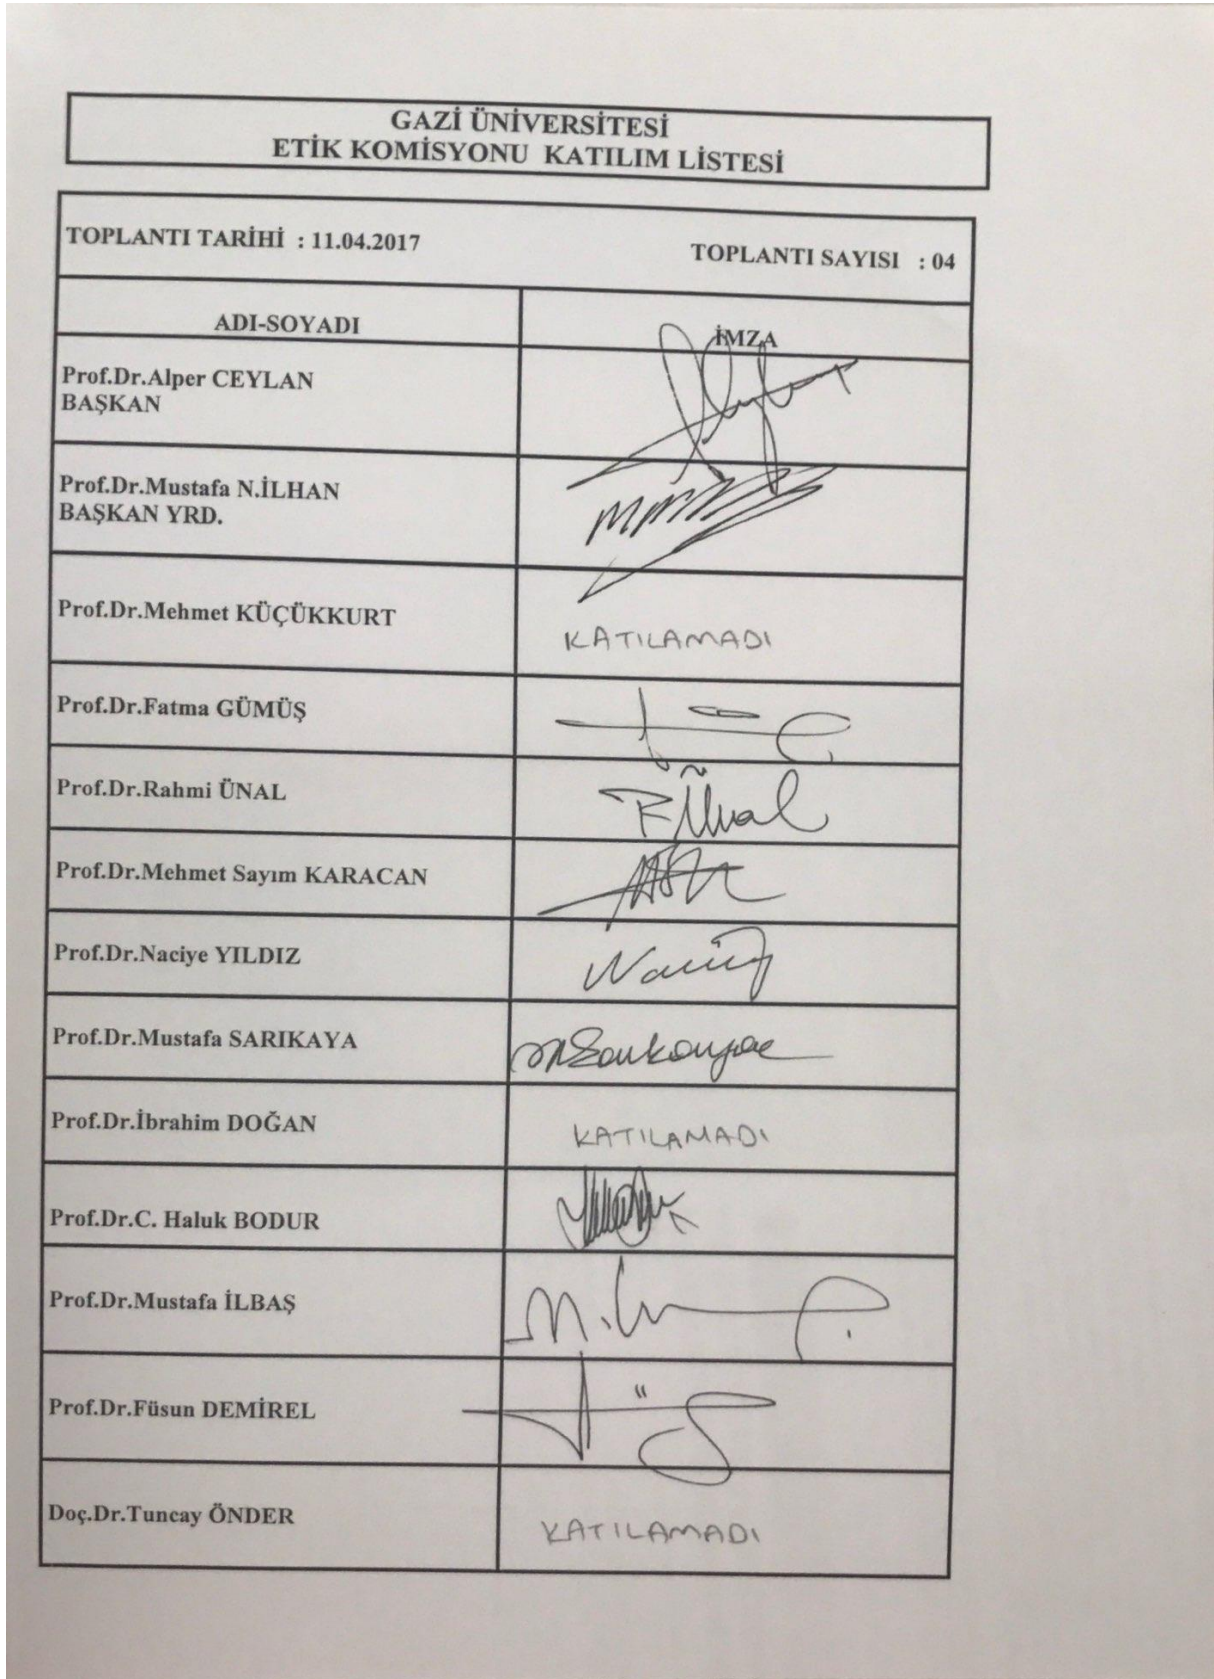 GAZİ ÜNİVERSİTESİ
ETİK KOMİSYONU KATILIM LİSTESİ
TOPLANTI TARİHİ : 11.04.2017 TOPLANTI SAYISI : 04
ADI-SOYADI İMZA
Prof.Dr.Alper CEYLAN
BAŞKAN
Prof.Dr.Mustafa N.İLHAN
BAŞKAN YRD.
Prof.Dr.Mehmet KÜÇÜKKURT KATILAMADI
Prof.Dr.Fatma GÜMÜŞ
Prof.Dr.Rahmi ÜNAL R Ünal
Prof.Dr.Mehmet Sayım KARACAN
Prof.Dr.Naciye YILDIZ
Prof.Dr.Mustafa SARIKAYA
Prof.Dr.İbrahim DOĞAN KATILAMADI
Prof.Dr.C. Haluk BODUR
Prof.Dr.Mustafa İLBAŞ
Prof.Dr.Füsun DEMİREL
Doç.Dr.Tuncay ÖNDER KATILAMADI